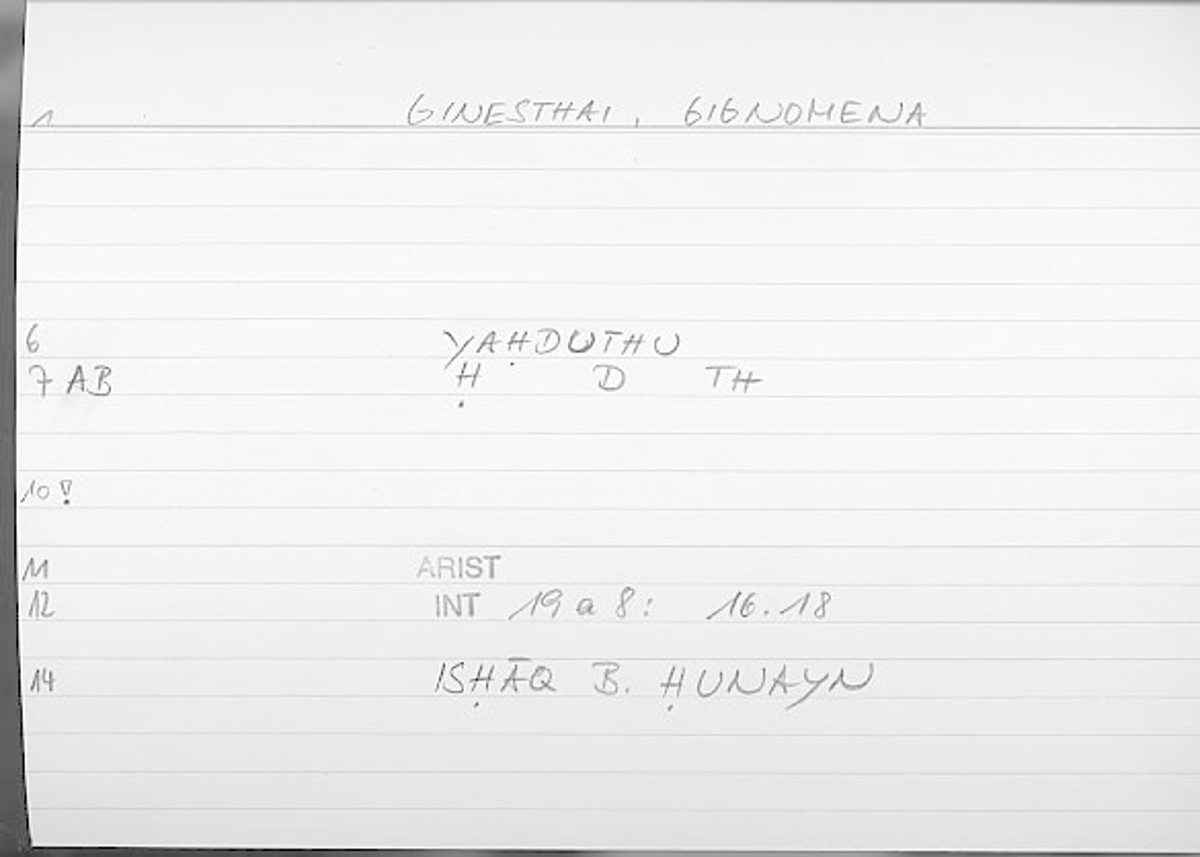 1 GINESTHAI, GIGNOMENA
6 YAḤDUTHU
7 AB Ḥ D TH
10 !
11 ARIST
12 INT 19 a 8: 16.18
14 ISḤĀQ B. ḤUNAYN